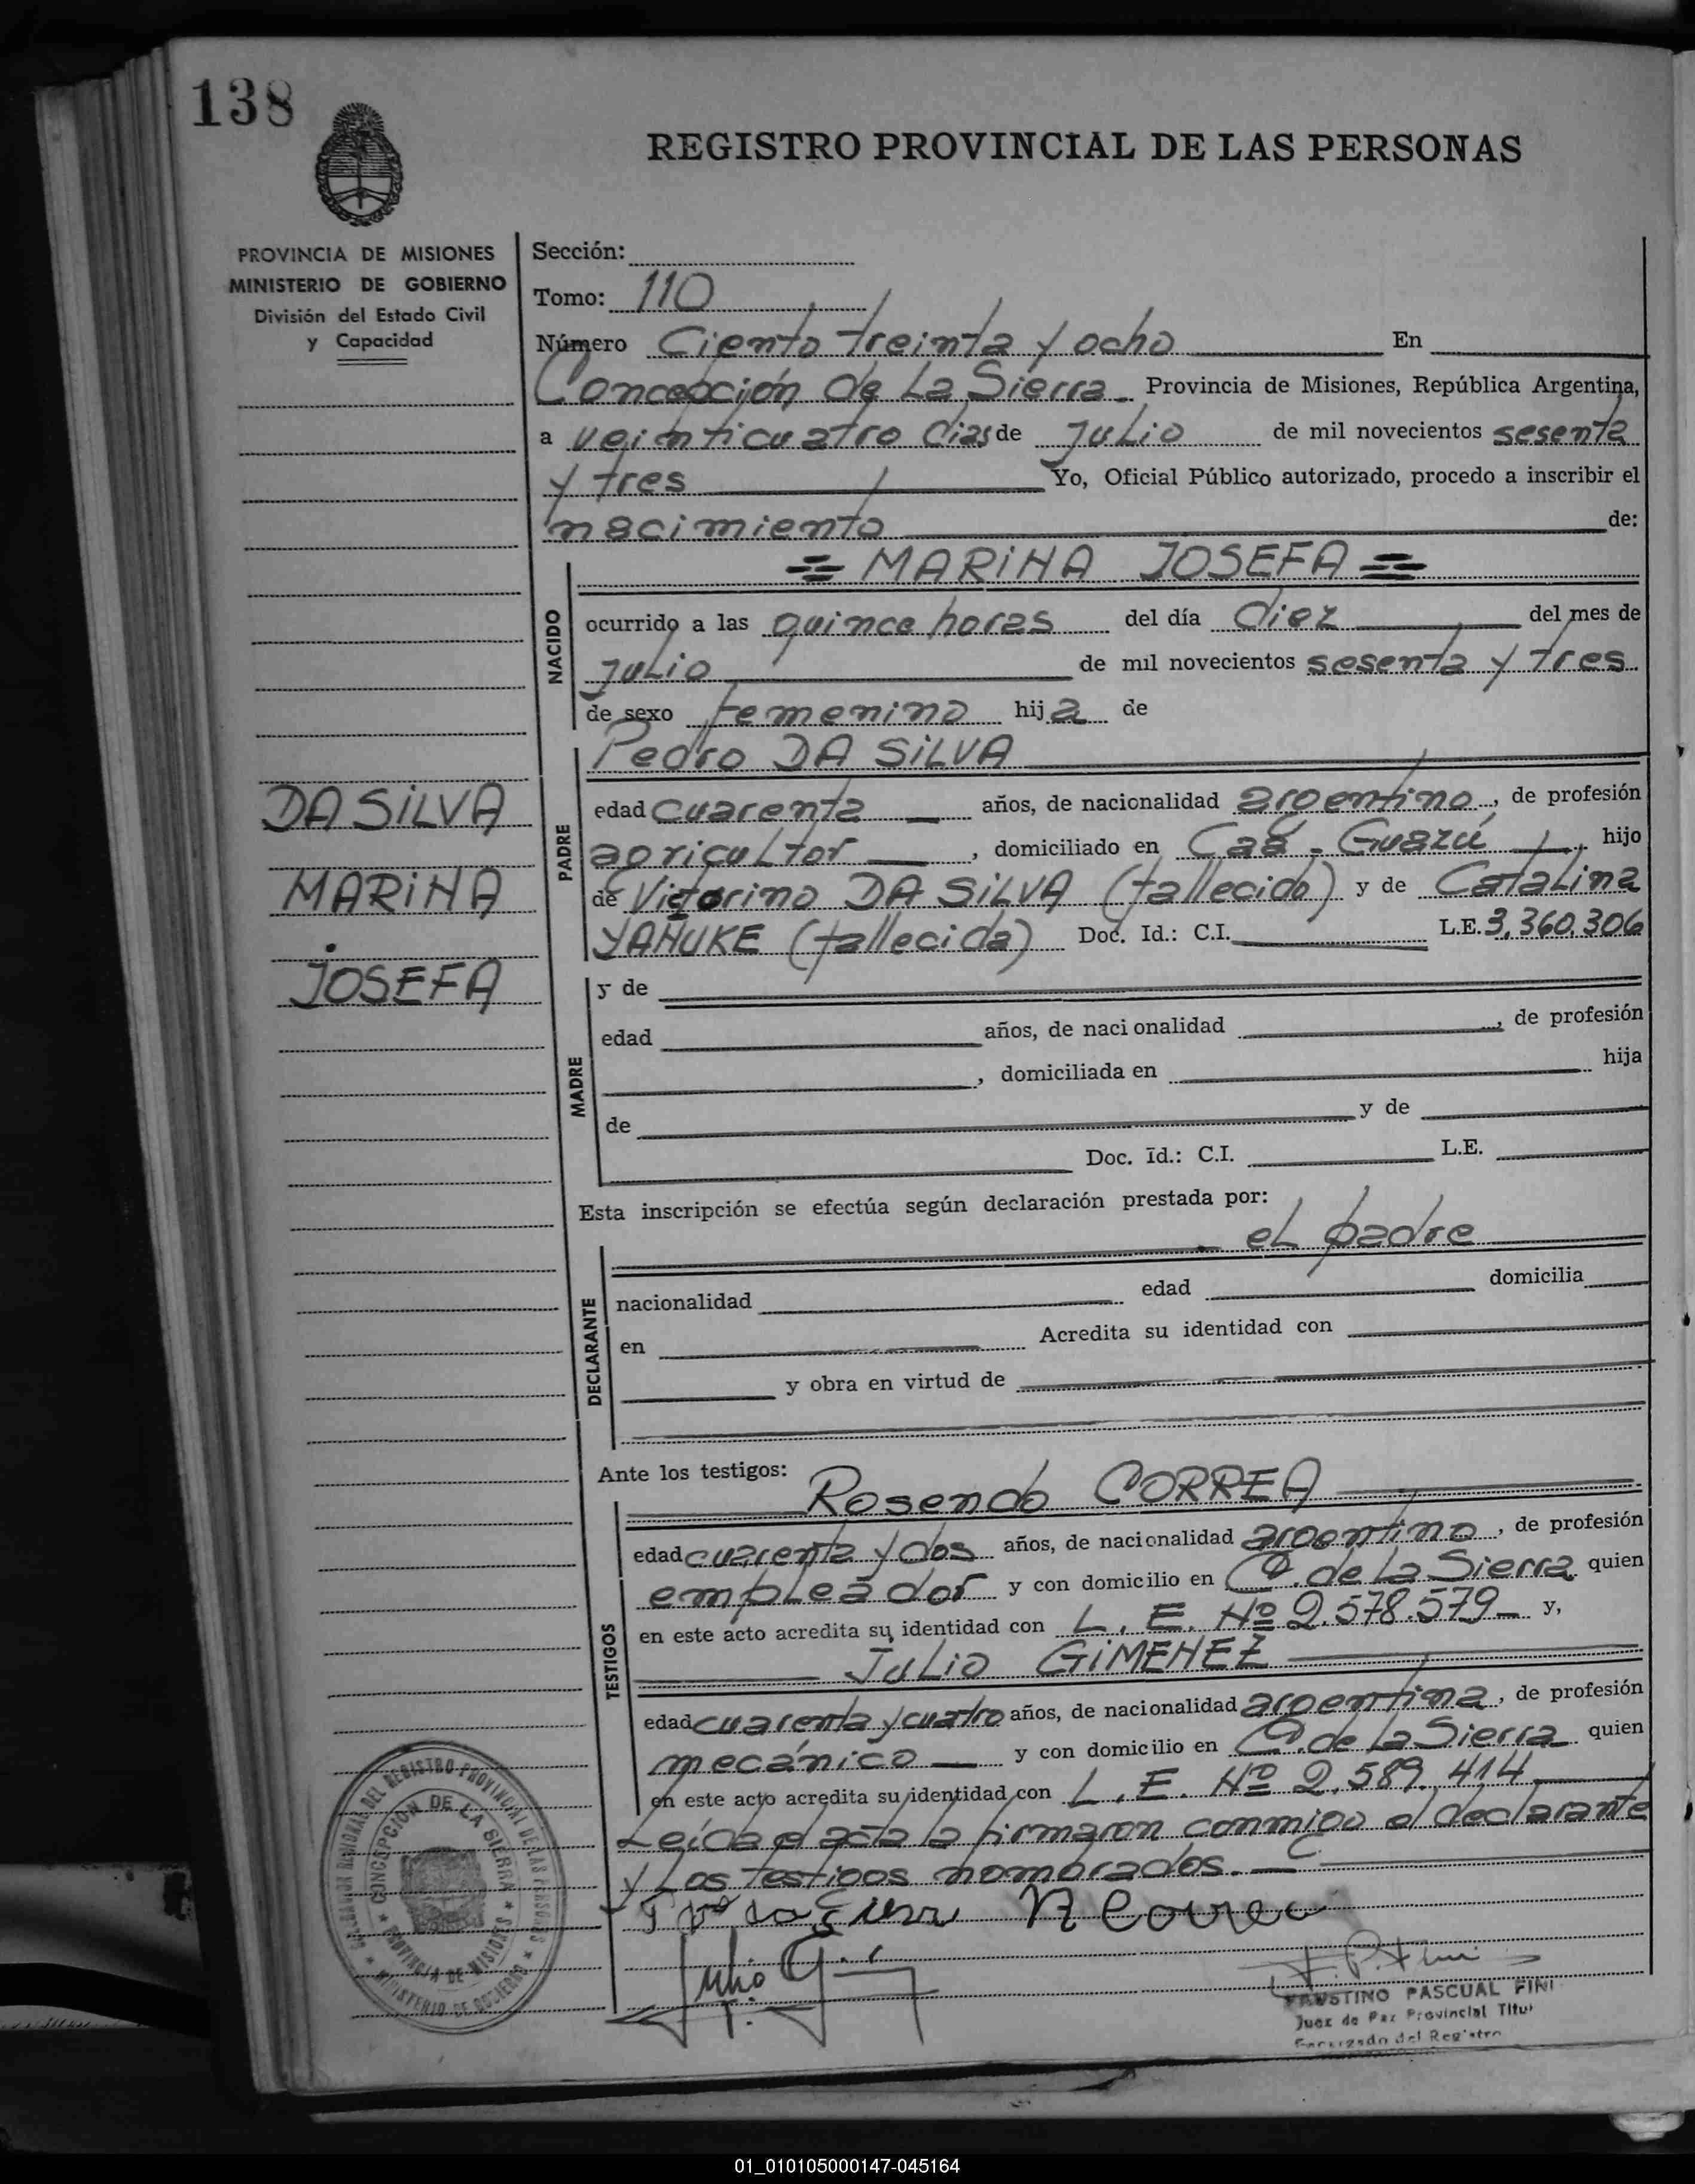 138
REGISTRO PROVINCIAL DE LAS PERSONAS
PROVINCIA DE MISIONES
MINISTERIO DE GOBIERNO
División del Estado Civil
y Capacidad
Sección:
Tomo: 110
Número Ciento treinta y ocho En
Concepción de La Sierra Provincia de Misiones, República Argentina,
a veinticuatro dias de Julio de mil novecientos sesenta
y tres Yo, Oficial Público autorizado, procedo a inscribir el
nacimiento de:
= MARINA JOSEFA =
NACIDO
ocurrido a las quince horas del día diez del mes de
julio de mil novecientos sesenta y tres
de sexo femenino hija de
Pedro DA SILVA
DA SILVA
MARINA
JOSEFA
PADRE
edad cuarenta años, de nacionalidad argentino, de profesión
agricultor, domiciliado en Caá-Guazú, hijo
de Victorino DA SILVA (fallecido) y de Catalina
YANUKE (fallecida) Doc. Id.: C.I. L.E. 3.360.306
MADRE
y de
edad años, de nacionalidad , de profesión
, domiciliada en hija
de y de
Doc. Id.: C.I. L.E.
Esta inscripción se efectúa según declaración prestada por:
el padre
DECLARANTE
nacionalidad edad domicilia
en Acredita su identidad con
y obra en virtud de
Ante los testigos:
Rosendo CORREA
TESTIGOS
edad cuarenta y dos años, de nacionalidad argentino, de profesión
empleador y con domicilio en C. de La Sierra quien
en este acto acredita su identidad con L. E. Nº 2.578.579 y,
Julio GIMENEZ
edad cuarenta y cuatro años, de nacionalidad argentina, de profesión
mecánico y con domicilio en C. de La Sierra quien
en este acto acredita su identidad con L. E. Nº 2.589.414
Leida el acta la firmaron conmigo el declarante
y Los testigos nombrados.
R Correa
Julio G
F. P. Fini
FAUSTINO PASCUAL FINI
Juez de Paz Provincial Titul
Encargado del Registro
DELEGACION REGIONAL DEL REGISTRO PROVINCIAL DE LAS PERSONAS
MINISTERIO DE GOBIERNO
CONCEPCION DE LA SIERRA
PROVINCIA DE MISIONES
01_010105000147-045164